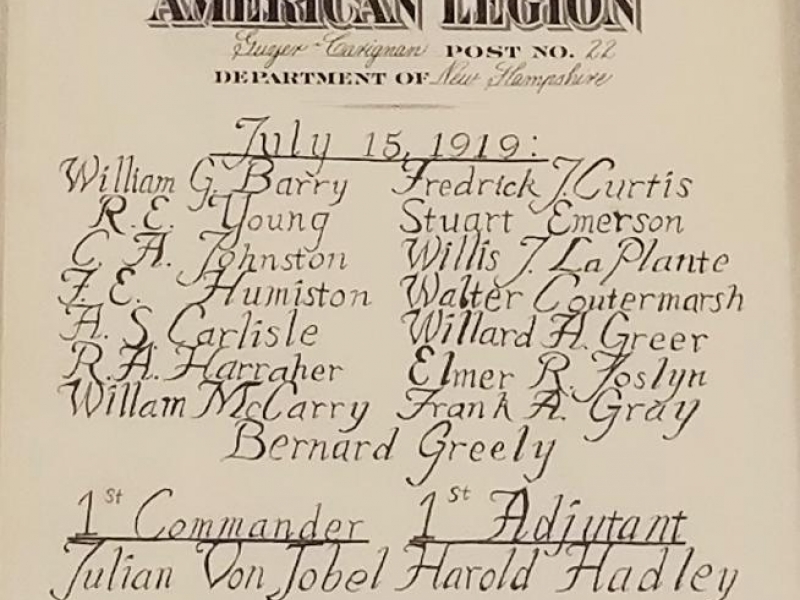 AMERICAN LEGION
Guyer-Carignan POST NO. 22
DEPARTMENT OF New Hampshire
July 15, 1919:
William G. Barry Fredrick J. Curtis
R. E. Young Stuart Emerson
C. A. Johnston Willis J. La Plante
F. E. Humiston Walter Coutermarsh
A. S. Carlisle Willard A. Greer
R. A. Harraher Elmer R. Joslyn
Willam McCarry Frank A. Gray
Bernard Greely
1st Commander 1st Adjutant
Julian Von Jobel Harold Hadley